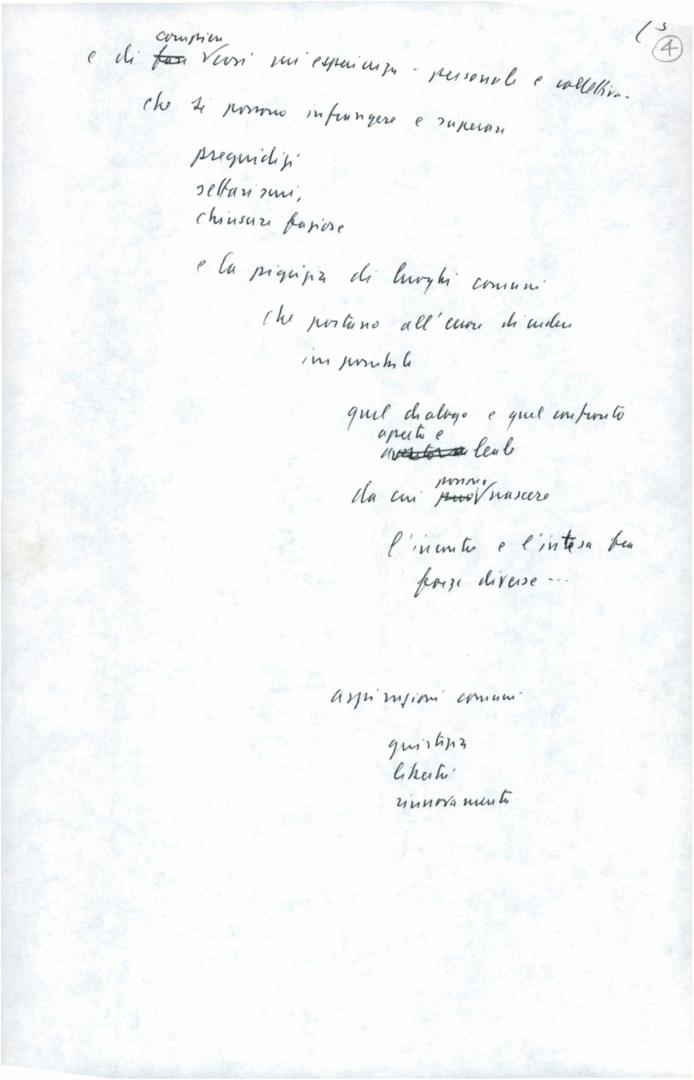 4
compiere
e di fare così un'esperienza - personale e collettiva -
che si possono infrangere e superare
pregiudizi
settarismi,
chiusure faziose
e la pigrizia di luoghi comuni
che portano all'
impossibile
quel dialogo e quel confronto
aperto e
leale
possono
da cui può nascere
l'incontro e l'intesa tra
forze diverse ...
aspirazioni comuni
giustizia
libertà
rinnovamento